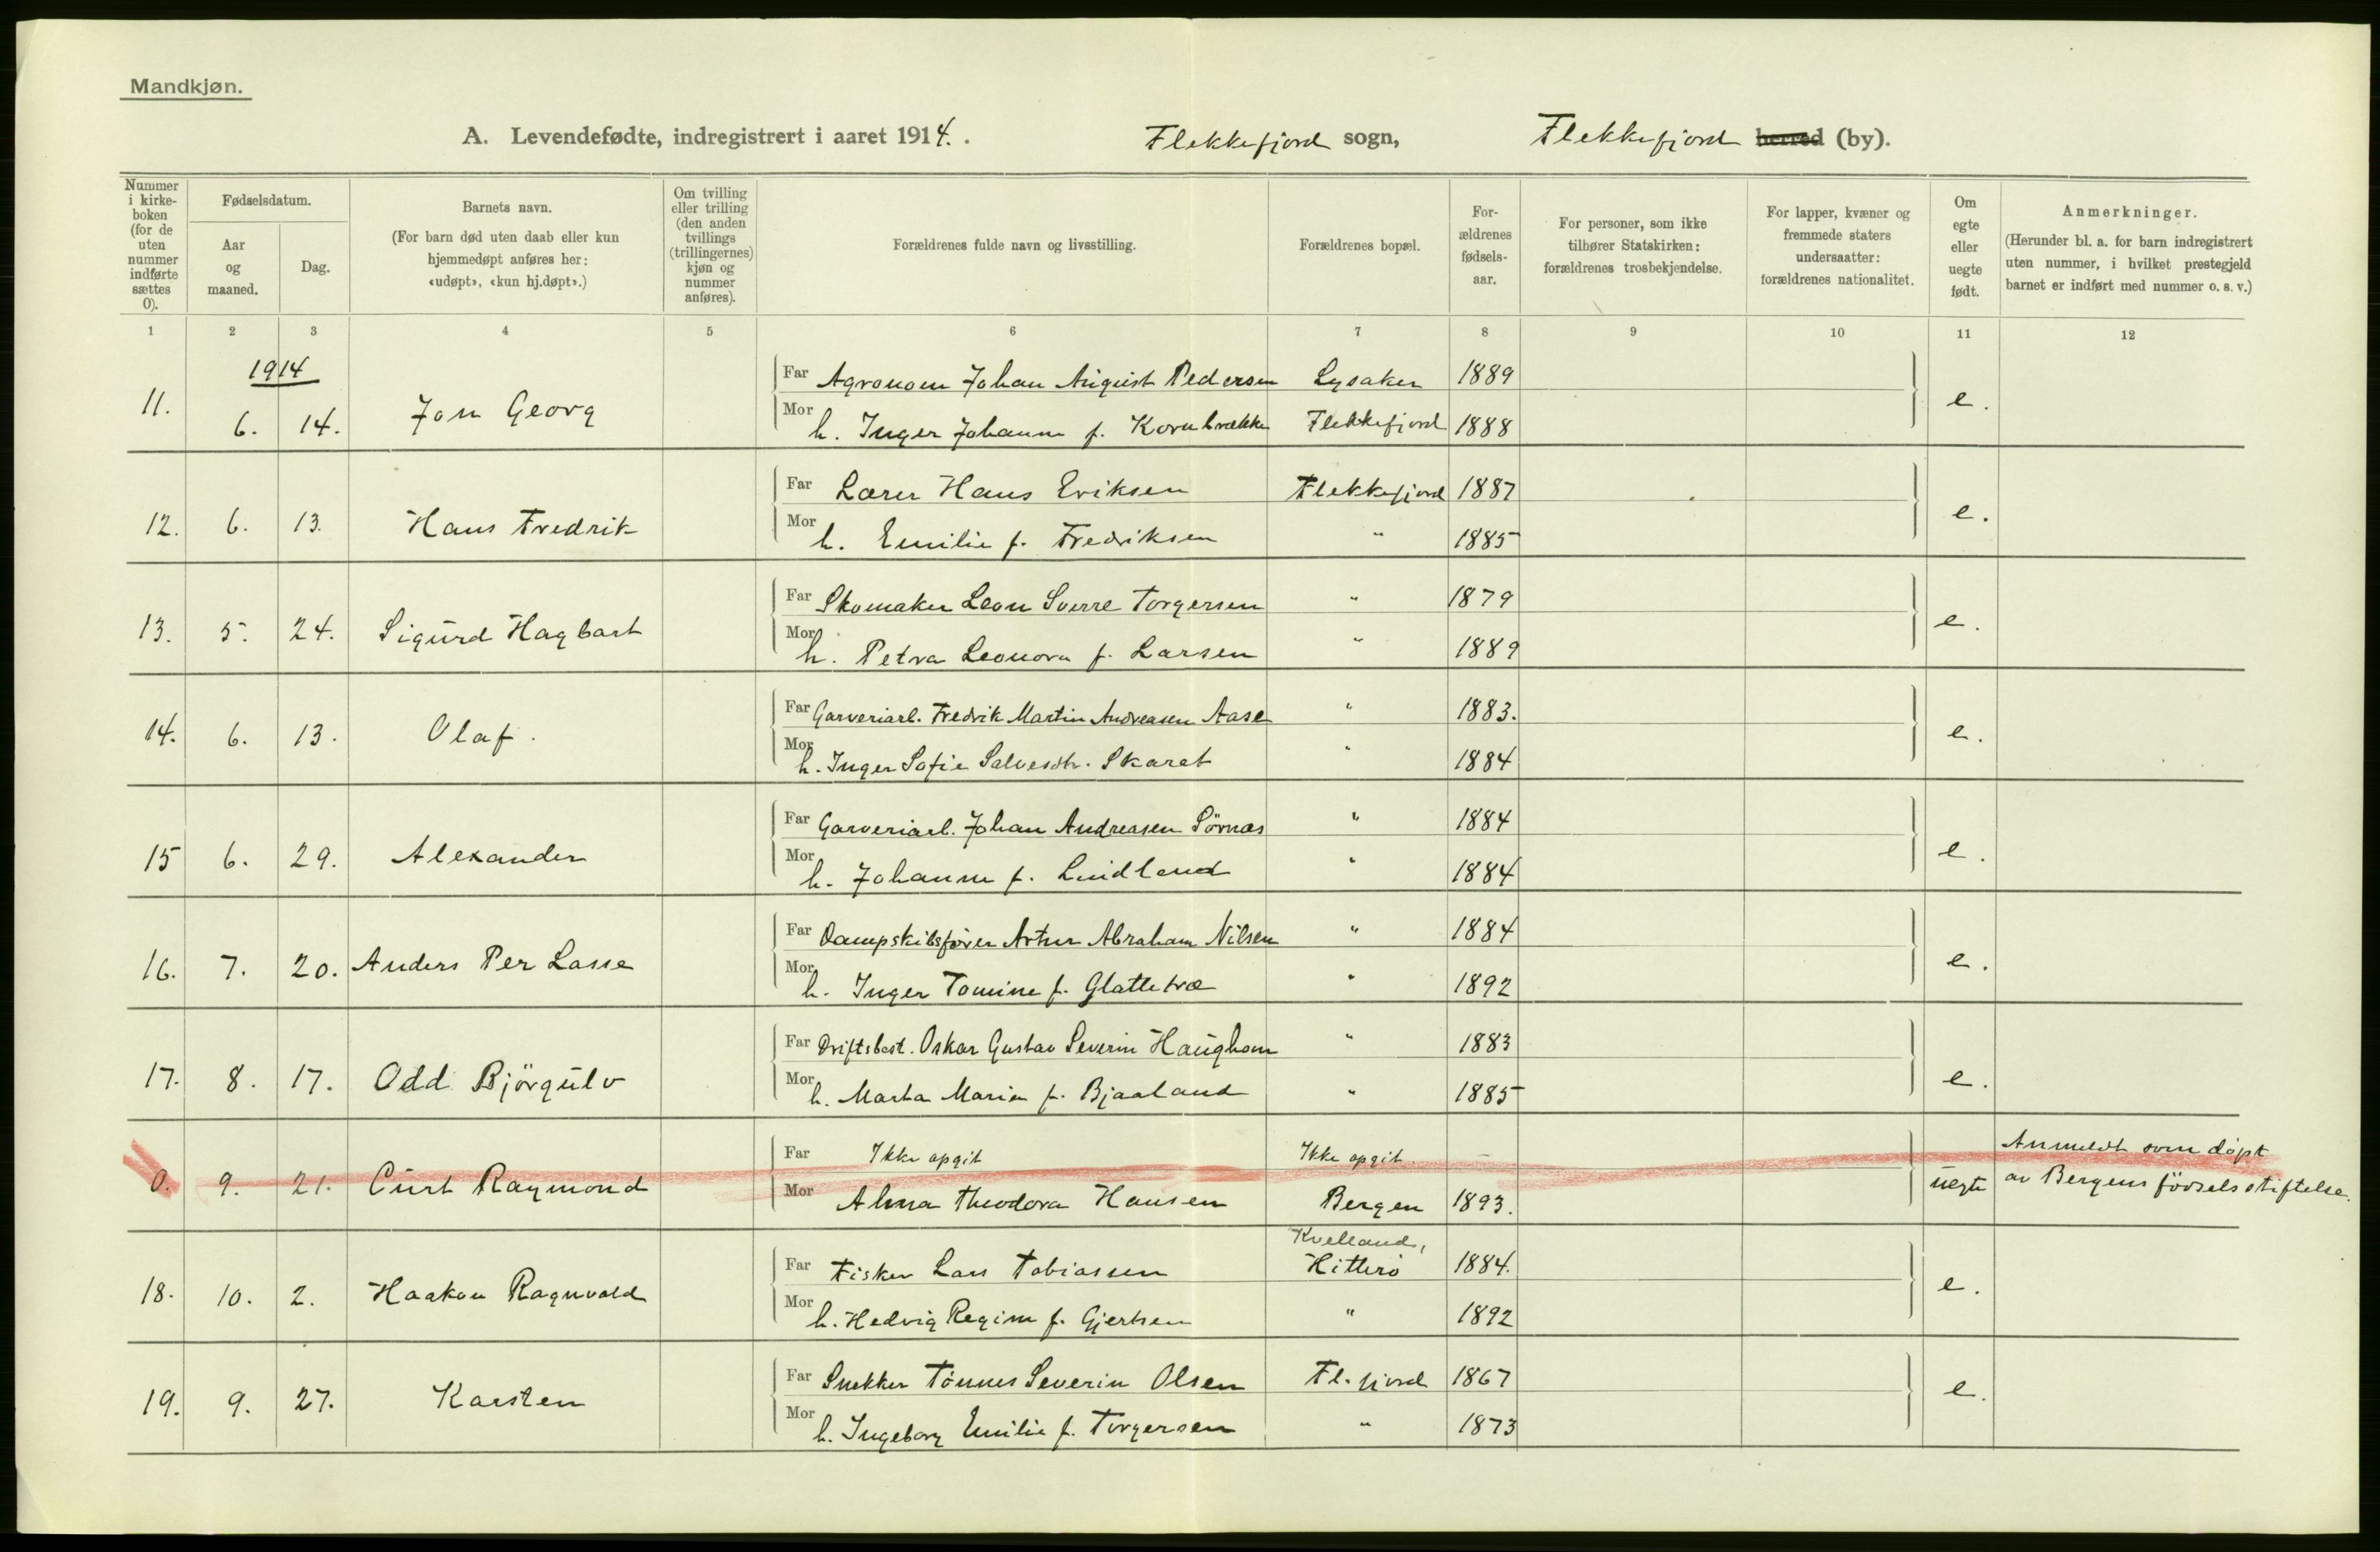 Mandkjøn.
A. Levendefødte, indregistrert i aaret 1914. . Flekkefjord sogn, Flekkefjord herred (by).
Nummer i kirke- boken (for de uten nummer indførte sættes 0).
Fødselsdatum.
Aar og maaned.
Dag.
Barnets navn.
(For barn død uten daab eller kun hjemmedøpt anføres her: «udøpt», «kun hj.døpt».)
Om tvilling eller trilling (den anden tvillings (trillingernes) kjøn og nummer anføres).
Forældrenes fulde navn og livsstilling.
Forældrenes bopæl.
For- ældrenes fødsels- aar.
For personer, som ikke tilhører Statskirken: forældrenes trosbekjendelse.
For lapper, kvæner og fremmede staters undersaatter: forældrenes nationalitet.
Om egte eller uegte født.
Anmerkninger.
(Herunder bl. a. for barn indregistrert uten nummer, i hvilket prestegjeld barnet er indført med nummer o. s. v.)
1 2 3 4 5 6 7 8 9 10 11 12
1914
11. 6. 14. Jan Georg
Far Agronom Johan August Pedersen Lysaker 1889
Mor h. Inger Johanne f. Kornbrække Flekkefjord 1888 e.
12. 6. 13. Hans Fredrik
Far Lærer Hans Eriksen Flekkefjord 1887
Mor h. Emilie f. Fredriksen " 1885 e.
13. 5. 24. Sigurd Hagbart
Far Skomaker Leon Sverre Torgersen " 1879
Mor h. Petra Leonora f. Larsen " 1889 e.
14. 6. 13. Olaf.
Far Garveriarb. Fredrik Martin Andreasen Aase " 1883.
Mor h. Inger Sofie Salvesdtr. Skaret " 1884 e.
15 6. 29. Alexander
Far Garveriarb. Johan Andreasen Sörnæs " 1884
Mor h. Johanne f. Lindland " 1884 e.
16. 7. 20. Anders Per Lasse
Far Dampskibsfører Artur Abraham Nilsen " 1884
Mor h. Inger Tomine f. Glattetræ " 1892 e.
17. 8. 17. Odd Björgulv
Far Driftsbest. Oskar Gustav Severin Haughom " 1883
Mor h. Marta Marie f. Bjaaland " 1885 e.
0. 9. 21. Curt Raymond
Far Ikke opgit Ikke opgit. — Anmeldt som döpt
Mor Alma Theodora Hansen Bergen 1893. uegte av Bergens födselsstiftelse.
18. 10. 2. Haakon Ragnvald
Kvelland,
Far Fisker Lars Tobiassen Hitterö 1884.
Mor h. Hedvig Regine f. Gjertsen " 1892 e.
19. 9. 27. Karsten
Far Snekker Tönnes Severin Olsen Fl.fjord 1867
Mor h. Ingeborg Emilie f. Torgersen " 1873 e.